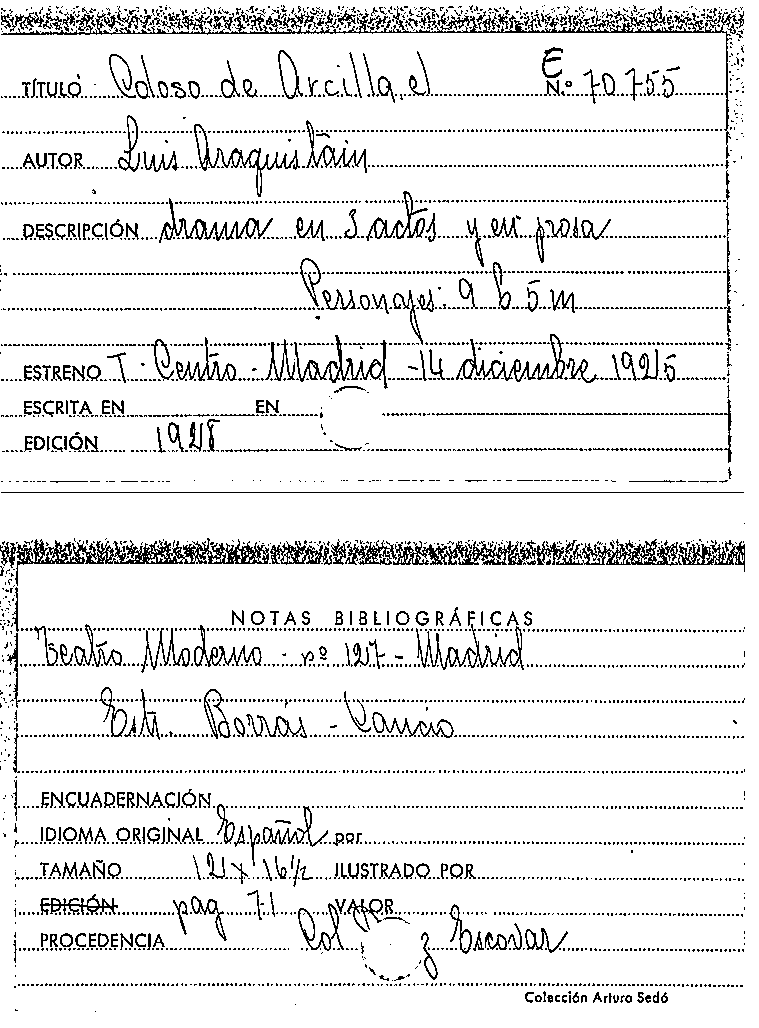 TÍTULO Coloso de Arcilla, el E N.º 70755
AUTOR Luis Araquistáin
DESCRIPCIÓN drama en 3 actos y en prosa
Personajes: 9 h 5 m
ESTRENO T. Centro - Madrid - 14 diciembre 1925
ESCRITA EN EN
EDICIÓN 1928
NOTAS BIBLIOGRÁFICAS
Teatro Moderno - nº 127 - Madrid
Estr. Borrás -
ENCUADERNACIÓN
IDIOMA ORIGINAL Español por
TAMAÑO 12 x 16 1/2 ILUSTRADO POR
EDICIÓN pag 71 VALOR
PROCEDENCIA Col Escovar
Colección Arturo Sedó